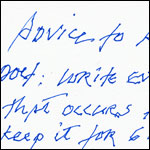 Advice to
poet: write
that occurs
keep it for 6